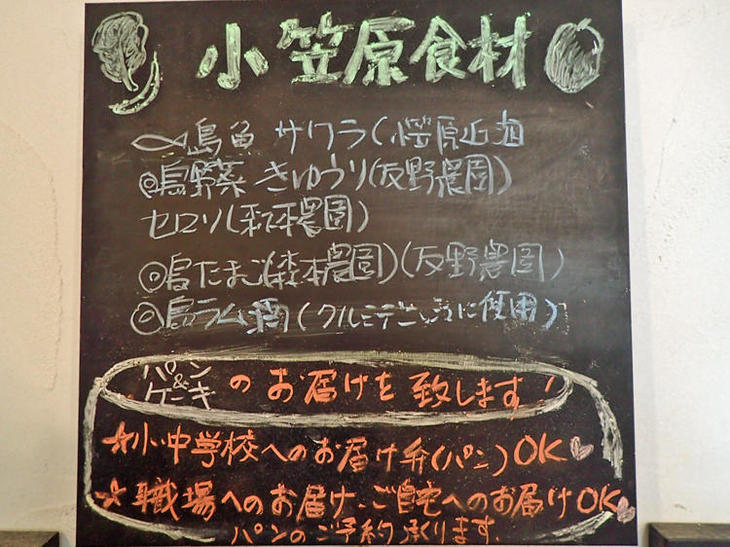 小笠原食材
島魚 サワラ(小笠原近海
◎島野菜 きゅうり(友野農園)
セロリ(森本農園)
◎島たまご(森本農園)(友野農園)
◎島ラム酒(クルミ に使用)
パン&ケーキ のお届けを致します!
☆小中学校へのお届け弁(パン)OK
☆職場へのお届け、ご自宅へのお届けOK
パンのご予約承ります。